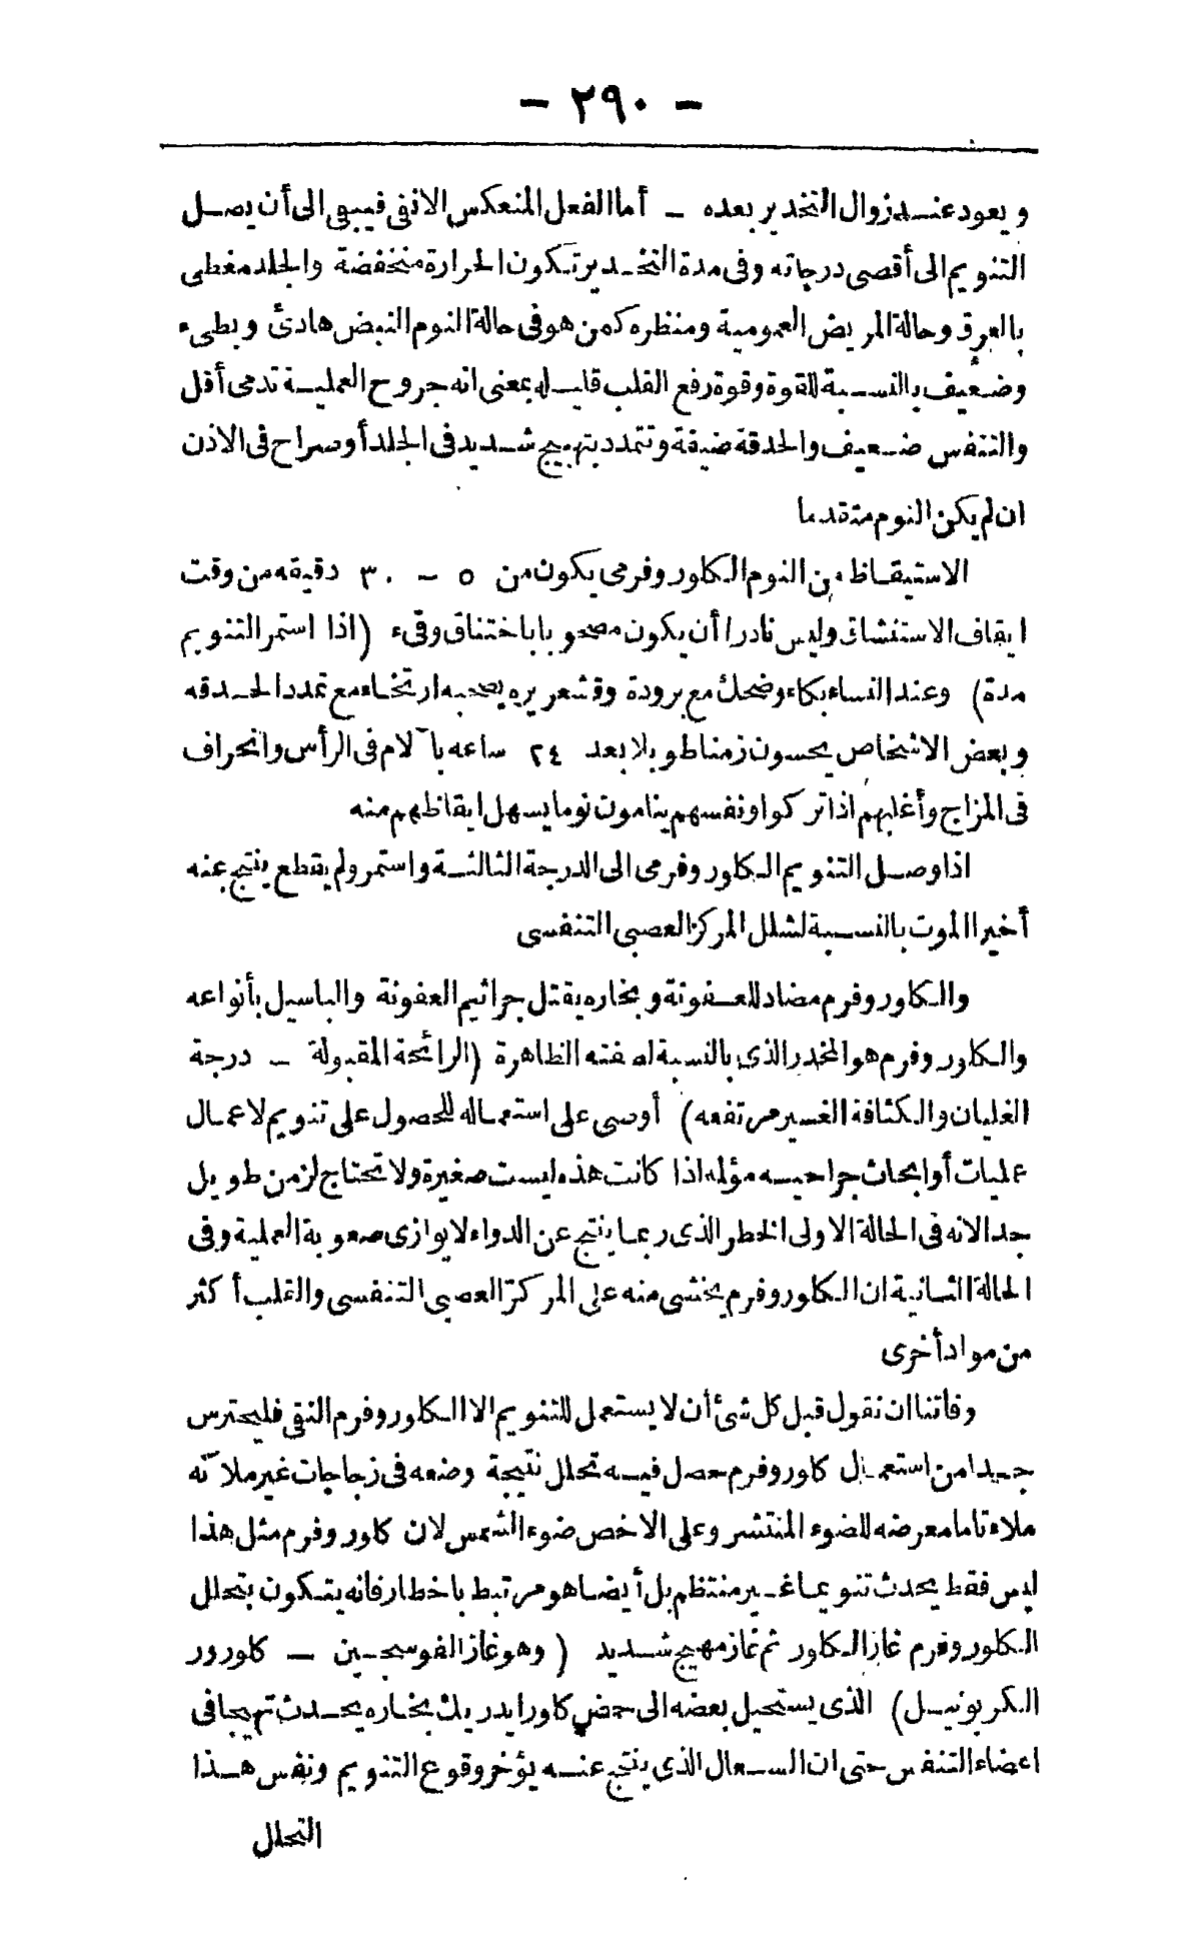 - ٢٩٠ -
ويعود عند زوال التخدير بعده - أما الفعل المنعكس الانفى فيبقى الى أن يصل
التنويم الى أقصى درجاته وفى مدة التخدير تكون الحرارة منخفضة والجلد مغطى
بالعرق وحالة المريض العمومية ومنظره كمن هو فى حالة النوم النبض هادئ وبطىء
وضعيف بالنسبة للقوة وقوة رفع القلب قليله بمعنى انه جروح العملية تدمى أقل
والتنفس ضعيف والحدقة ضيقة وتتمدد بتهييج شديد فى الجلد أو صراح فى الاذن
ان لم يكن النوم متقدما
الاستيقاظ من النوم الكلوروفرمى يكون من ٥ - ٣٠ دقيقه من وقت
ايقاف الاستنشاق وليس نادرا أن يكون مصحوبا باختناق وقىء (اذا استمر التنويم
مدة) وعند النساء بكاء وضحك مع برودة وقشعريره يصحبه ارتخاء مع تمدد الحدقه
وبعض الاشخاص يحسون زمنا طويلا بعد ٢٤ ساعه بآلام فى الرأس وانحراف
فى المزاج وأغلبهم اذا تركوا ونفسهم ينامون نوما يسهل ايقاظهم منه
اذا وصل التنويم الكلوروفرمى الى الدرجة الثالثة واستمر ولم يقطع ينتج عنه
أخيرا الموت بالنسبة لشلل المركز العصبى التنفسى
والكلوروفرم مضاد للعفونة وبخاره يقتل جراثيم العفونة والباسيل بأنواعه
والكلوروفرم هو المخدر الذى بالنسبة لصفته الظاهرة (الرائحة المقبولة - درجة
الغليان والكثافة الغير مرتفعه) أوصى على استعماله للحصول على تنويم لاعمال
عمليات أو ابحاث جراحيه مؤلمه اذا كانت هذه ليست صغيرة ولا تحتاج لزمن طويل
جدا لانه فى الحالة الاولى الخطر الذى ربما ينتج عن الدواء لا يوازى صعوبة العملية وفى
الحالة الثانية ان الكلوروفرم يخشى منه على المركز العصبى التنفسى والقلب أكثر
من مواد أخرى
وفاتنا ان نقول قبل كل شئ أن لا يستعمل للتنويم الا الكلوروفرم النقى فليحترس
جيدا من استعمال كلوروفرم حصل فيه تحلل نتيجة وضعه فى زجاجات غير ملآنه
ملاء تاما معرضه للضوء المنتشر وعلى الاخص ضوء الشمس لان كلوروفرم مثل هذا
ليس فقط يحدث تنويما غير منتظم بل أيضا هو مرتبط باخطار فانه يتكون بتحلل
الكلوروفرم غاز الكلور ثم غاز مهيج شديد (وهو غاز الفوسجين - كلورور
الكربونيل) الذى يستحيل بعضه الى حمض كلورايدريك بخاره يحدث تهيجا فى
اعضاء التنفس حتى ان السعال الذى ينتج عنه يؤخر وقوع التنويم ونفس هذا
التحلل